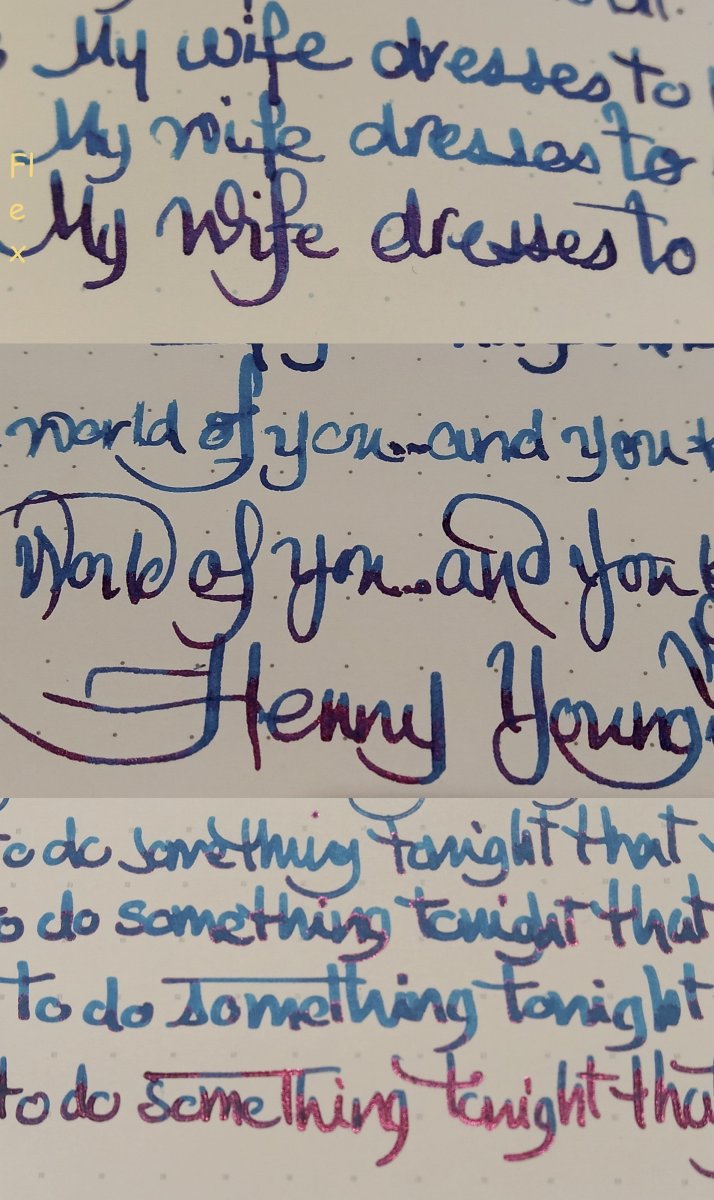 My wife dresses to
My wife dresses to
My wife dresses to
Flex
world of you...and you
World of you...and you
Henny Young
to do something tonight that
to do something tonight that
to do something tonight
to do something tonight tha